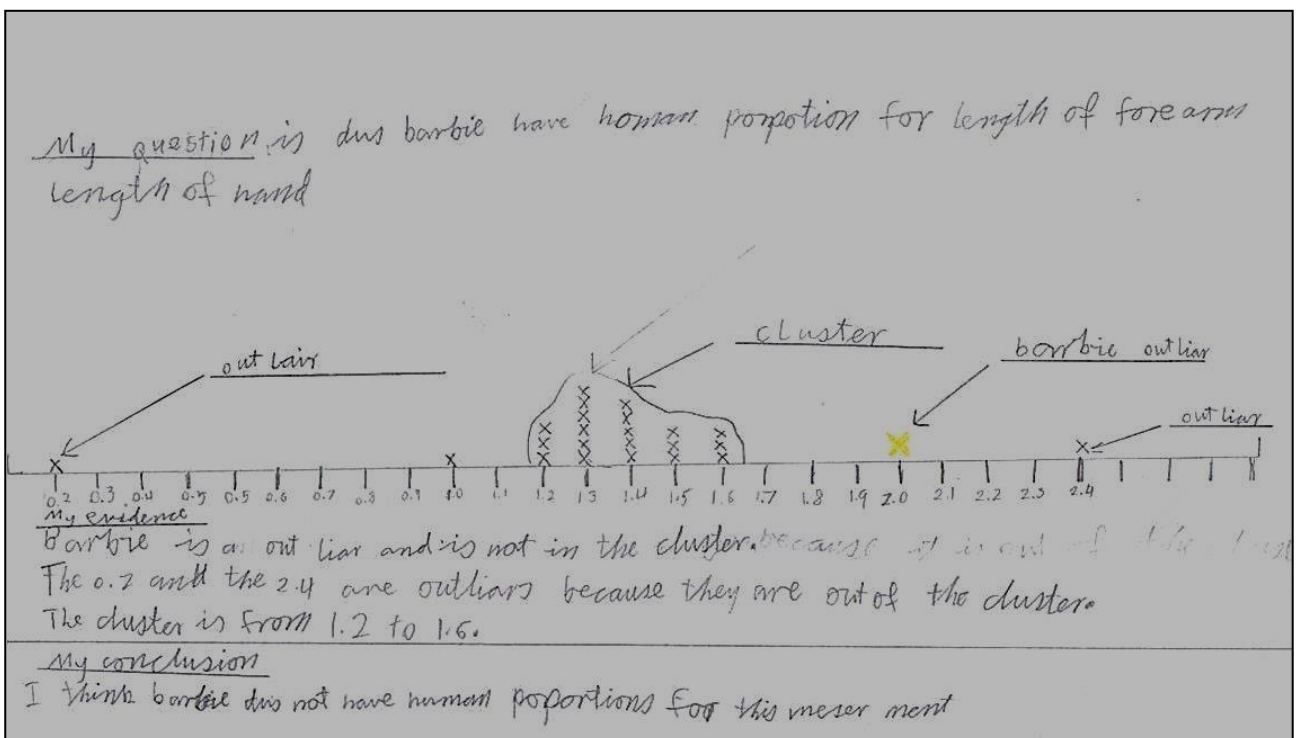 My question is dus barbie have homan porpotion for length of forearm
length of hand
cluster
out lair
barbie outliar
outliar
0.2 0.3 0.4 0.5 0.5 0.6 0.7 0.8 0.9 1.0 1.1 1.2 1.3 1.4 1.5 1.6 1.7 1.8 1.9 2.0 2.1 2.2 2.3 2.4
My evidence
Barbie is a out liar and is not in the cluster. because it is out of the
The 0.2 and the 2.4 are outliars because they are out of the cluster.
The cluster is from 1.2 to 1.6.
My conclusion
I think barbie dus not have human poportions for this meser ment